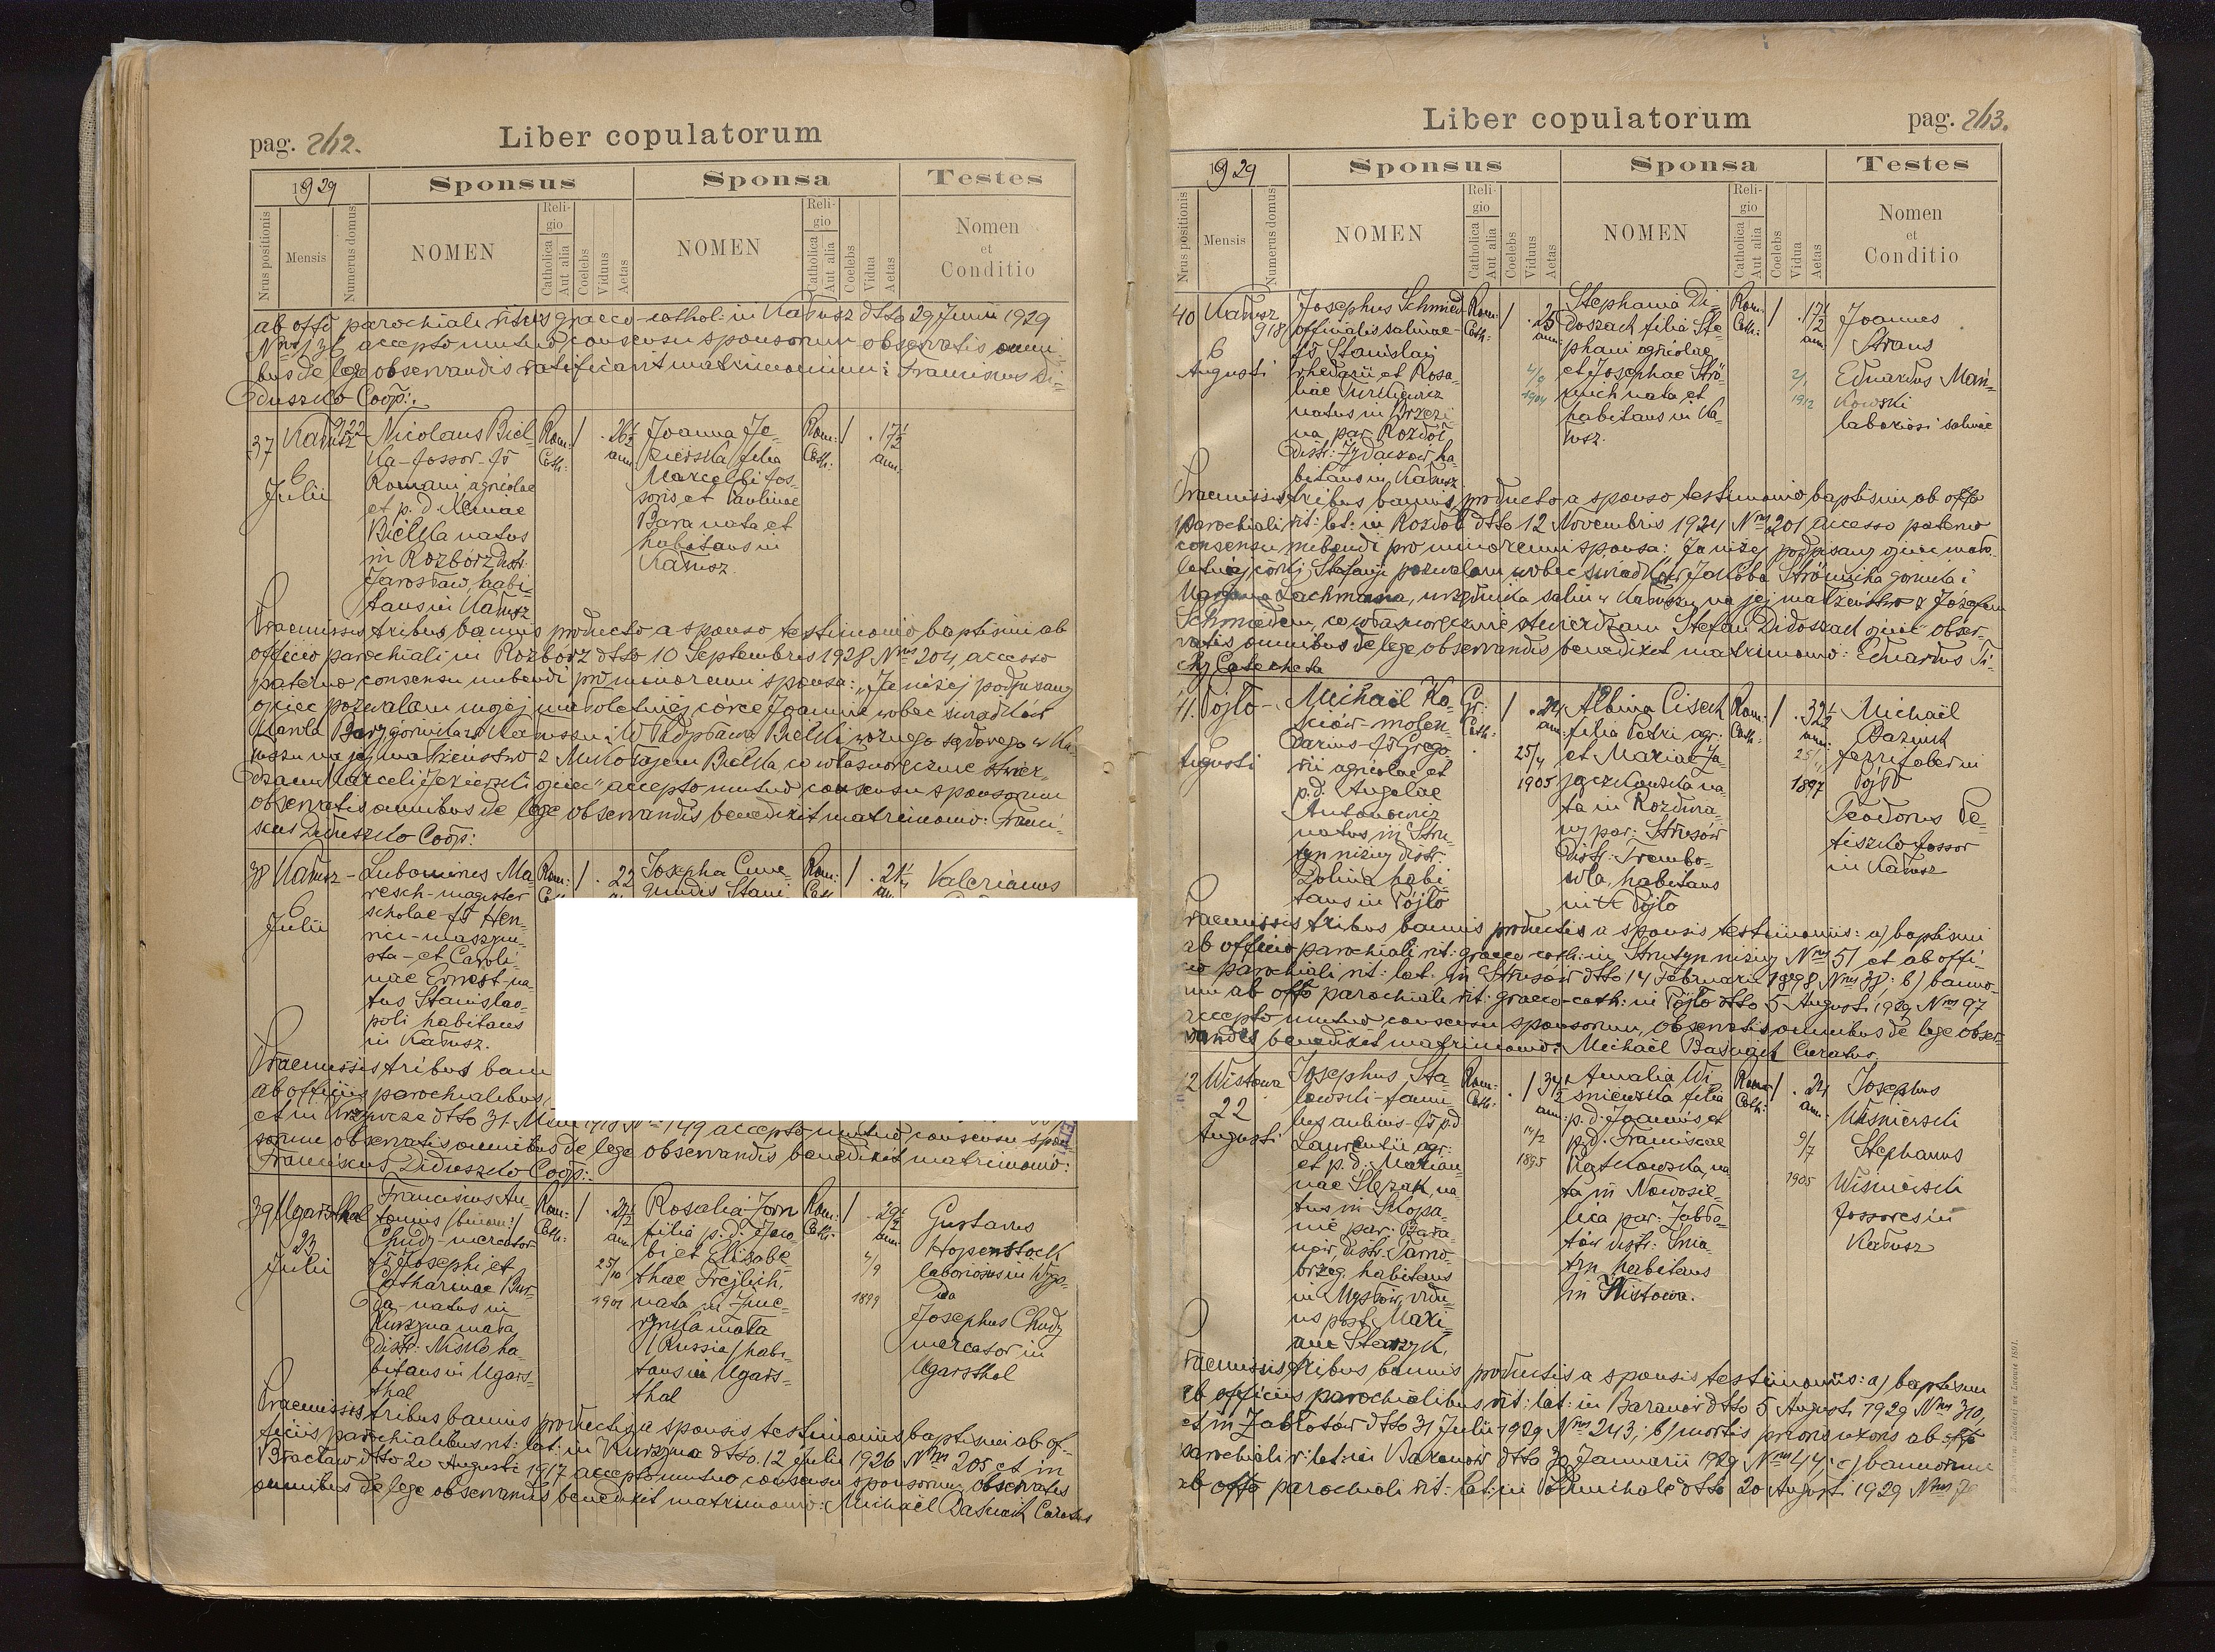 pag. 212.
Liber copulatorum
1929
Sponsus
Sponsa
Testes
Nrus positionis
Mensis
Numerus domus
NOMEN
Religio
Catholica
Aut alia
Coelebs
Viduus
Aetas
NOMEN
Religio
Catholica
Aut alia
Coelebs
Vidua
Aetas
Nomen
et
Conditio
ab offo parochiali ritus graeco-cathol: in Kałusz dtto 29 Junii 1929
Nrus 136, accepto mutuo consensu sponsorum observatis omni-
bus de lege observandis ratificavit matrimonium: Franciscus Di-
duszko Coop:.
37
Kałusz 922
6
Julii
Nicolaus Biel-
ka-fossor-fs
Romani agricolae
et p. d. Xeniae
Bielka natus
in Rozbórz distr.
Jarosław, habi-
tans in Kałusz
Rom: Cath:
1
26 1/2 ann.
Joanna Je-
zierska filia
Marcelli fos-
soris et Paulinae
Bara nata et
habitans in
Kałusz.
Rom: Cath:
1
17 1/2 ann.
Praemissis tribus bannis producto a sponso testimonio baptismi ab
officio parochiali in Rozbórz dtto 10 Septembris 1928 Nrus 204, accesso
paterno consensu nubendi pro minorenni sponsa: "Ja niżej podpisany
ojciec pozwalam mojej małoletniej córce Joannie wobec świadków
Karola Bary górnika w Kałuszu i Władysława Bielki woznego sądowego w Ka-
łuszu na jej małżeństwo z Mikołajem Bielka, co własnoręcznie stwier-
dzam Marceli Jezierski ojciec" accepto mutuo consensu sponsorum
observatis omnibus de lege observandis benedixit matrimonio: Franci-
scus Diduszko Coop:
38
Kałusz -
6
Julii
Lubomirus Ma-
resch-magister
scholae-fs Hen-
rici-maszyni-
sta-et Caroli-
nae Ernest-na-
tus Stanislao-
poli habitans
in Kałusz.
Rom:
1
22
Josepha Cune-
gundis Stani-
Rom:
1
Valerianus
Praemissis tribus bann
ab officiis parochialibus,
et in dtto 31. 149 accepto mutuo consensu spon-
sorum observatis omnibus de lege observandis benedixit matrimonio:
Franciscus Diduszko Coop:.
39
Ugarsthal
23
Julii
Franciscus An-
tonius (binom:)
Chudy-mercator
fs Josephi et
Catharinae Bur-
da-natus in
Kurzyna mała
distr: Nisko ha-
bitans in Ugars-
thal
Rom: Cath:
1
25/10
1901
Rosalia Jorn
filia p. d. Jaco-
bi et Elisabe-
thae Frejlich,
nata in
mała
(Russia) habi-
tans in Ugars-
thal
Rom: Cath:
1
29 1/2 ann.
4/9
1899
Gustavus
Hopenstock
laboriosus in Wygo-
da
Josephus Chudy
mercator in
Ugarsthal
Praemissis tribus bannis productis a sponsis testimoniis baptismi ab of-
ficiis parochialibus rit: lat: in Kurzyna dtto. 12 Julii 1926 Nrus 205 et in
Bracław dtto 20 Augusti 1917 accepto mutuo consensu sponsorum, observatis
omnibus de lege observandis benedixit matrimonio: Michaël Basucik Curatus
pag. 213.
Liber copulatorum
1929
Sponsus
Sponsa
Testes
Nrus positionis
Mensis
Numerus domus
NOMEN
Religio
Catholica
Aut alia
Coelebs
Viduus
Aetas
NOMEN
Religio
Catholica
Aut alia
Coelebs
Vidua
Aetas
Nomen
et
Conditio
40
Kałusz
918
6
Augusti
Josephus Schmied
officialis salinae-
fs Stanislai
rhedarii et Rosa-
liae Turkiewicz
natus in Brzezi-
na par. Rozdół
distr: Żydaczów ha-
bitans in Kałusz
Rom: Cath:
1
25 ann:
1904
Stephania Di-
doszak filia Ste-
phani agricolae
et Josephae Strö-
mich nata et
habitans in Ka-
łusz.
Rom: Cath:
1
17 1/2 ann:
2/1
1912
Joannes
Straus
Eduardus Mań-
kowski
laboriosi salinae
Praemissis tribus bannis, producto a sponso testimonio baptismi ab offo
parochiali rit: lat: in Rozdół dtto 12 Novembris 1924 Nrus 201, accesso paterno
consensu nubendi pro minorenni sponsa: Ja niżej podpisany ojciec mało-
letniej córki Stefanji pozwalam wobec świadków Jakóba Strömicha górnika i
Lachmana, urzędnika salin w Kałuszu, na jej małżeństwo z Józefem
Schmiedem, co własnoręcznie stwierdzam Stefan Didoszak ojciec obser-
vatis omnibus de lege observandis benedixit matrimonio: Eduardus Ti-
chy Catecheta
41.
Pójło -
6
Augusti
Michaël Ko-
sciów-molen-
darius-fs Grego-
rii agricolae et
p. d. Angelae
Antonowicz
natus in Stru-
tyn niżny distr.
Dolina habi-
tans in Pójło
Gr: Cath:
1
24 ann:
25/4
1905
Albina Cisek
filia Petri agr:
et Mariae Ja-
jączkowska na-
ta in Rozdwia-
ny par: Strusów
distr: Trembo-
wla, habitans
in Pójło
Rom: Cath:
1
32 1/2 ann:
1897
Michaël
Baziuk
ferri faber in
Pójło
Teodorus De-
tiszko fossor
in Kałusz
Praemissis tribus bannis productis a sponsis testimoniis: a) baptismi
ab officio parochiali rit: graeco-cath: in Strutyn niżny Nrus 51 et ab offi-
cio parochiali rit: lat: in Strusów dtto 14 Februarii 1898 Nrus 38: b) banno-
rum ab offo parochiali rit: graeco-cath: in Pójło dtto 5 Augusti 1929 Nrus 97
accepto mutuo consensu sponsorum, observatis omnibus de lege obser-
vandis benedixit matrimonio: Michaël Basucik Curatus
42
Wistowa
22
Augusti
Josephus Sta-
lowski-famu-
lus aulicus-fs p.d.
Laurentii agr:
et p. d. Marian-
nae Ślęzak, na-
tus in Skopa-
nie par: Bara-
nów, distr: Tarno-
brzeg, habitans
in Mysłów, vidu-
us post Mari-
am Stenzyk.
Rom: Cath:
1
34 1/2 ann:
14/2
1895
Amalia Wi-
śniewska filia
p. d. Joannis et
p. d. Franciscae
Ratkowska, na-
ta in Nowosie-
lica par: Zabło-
tów distr: Śnia-
tyn habitans
in Wistowa.
Rom: Cath:
1
24 ann.
9/7
1905
Josephus
Wiśniewski
Stephanus
Wiśniewski
fossores in
Kałusz
Praemissis tribus bannis productis a sponsis testimoniis: a) baptismi
ab officiis parochialibus rit: lat: in Baranów dtto 5 Augusti 1929 Nrus 310,
et in Zabłotów dtto 31 Julii 1929 Nrus 243,; b) mortis prioris uxoris ab offo
parochiali r: lat: in Baranów dtto 30 Januarii 1929 Nrus 44; c) bannorum
ab offo parochiali rit: lat: in dtto 20 Augusti 1929 Nrus